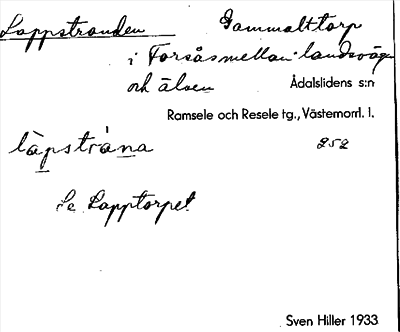 Lappstranden Gammalt torp
i Forsås mellan landsvägen
och älven Ådalslidens s:n
Ramsele och Resele tg., Västernorrl. l.
làpstrána 252
Se Lapptorpet
Sven Hiller 1933